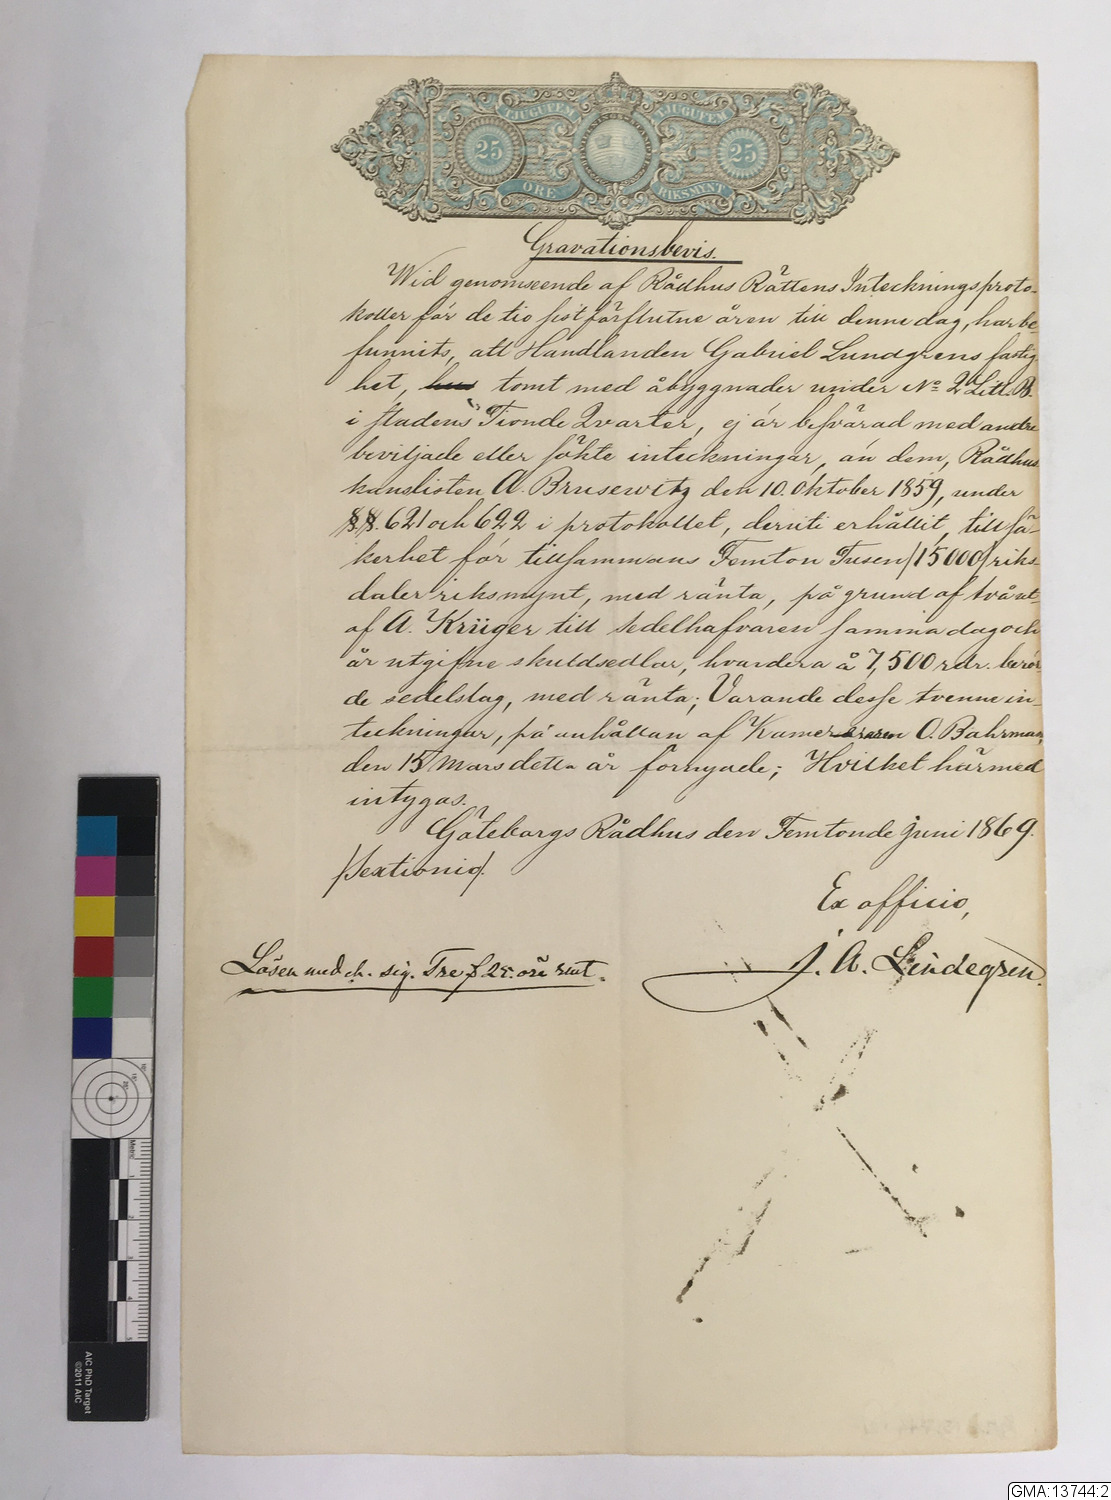 TJUGUFEM TJUGUFEM
25 25
ÖRE RIKSMYNT
Gravationsbevis.
Wid genomseende af Rådhus Rättens Inteckningsproto-
koller för de tio sistförflutne åren till denne dag, har be-
funnits, att Handlanden Gabriel Lundgrens fastig-
het, tomt med åbyggnader under No 2 Litt. B.
i stadens Tionde Qvarter, ej är besvärad med andre
beviljade eller sökte inteckningar, än dem, Rådhus
kanslisten A. Brusewitz den 10. Oktober 1859, under
§§. 621 och 622 i protokollet, deruti erhållit, till sä-
kerhet för tillsammans Femton Tusen /15000/ riks-
daler riksmynt, med ränta, på grund af två ut-
af A. Krüger till sedelhafvaren samma dag och
år utgifne skuldsedlar, hvardera å 7,500 rdr. berör-
de sedelslag, med ränta; Varande desse tvenne in-
teckningar, på anhållan af Kamereraren O. Bahrman,
den 15 Mars detta år förnyade; Hvilket härmed
intygas.
Göteborgs Rådhus den Femtonde Juni 1869.
/Sextionio/.
Ex officio,
J. A. Lindegren.
Lösen med ch. sig. Tre 25. öre rmt.
AIC PhD Target
©2011 AIC
GMA:13744:2